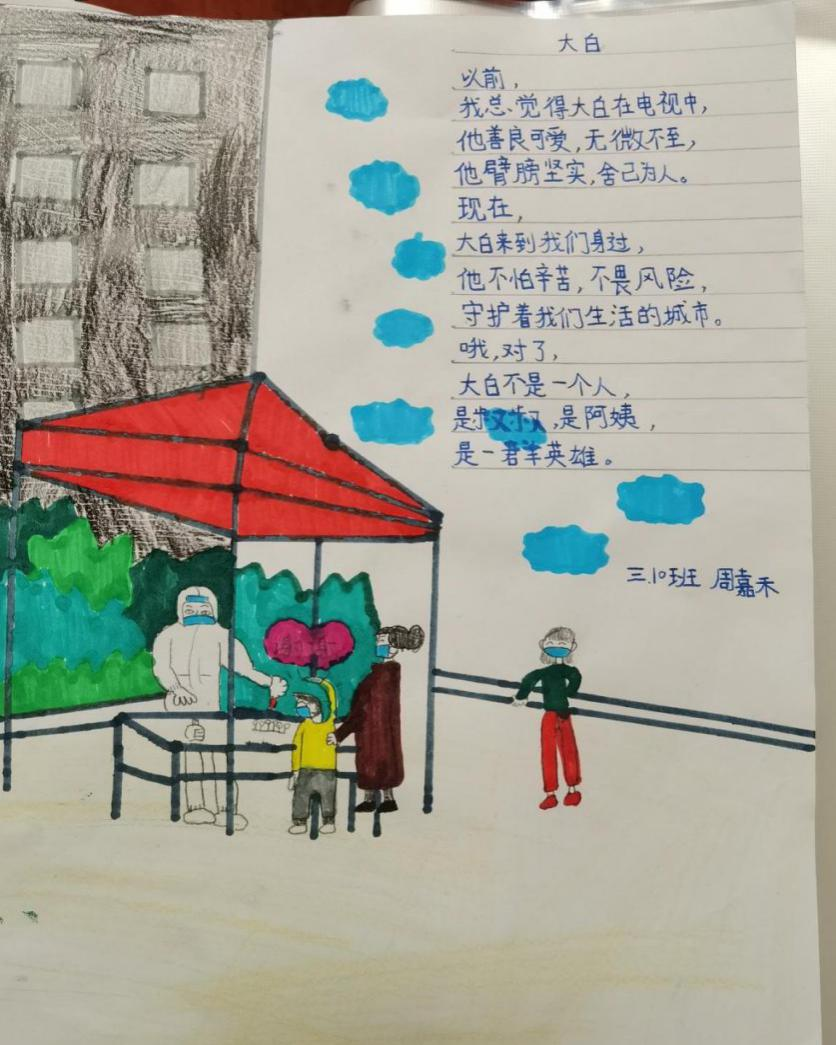 大白
以前，
我总觉得大白在电视中，
他善良可爱，无微不至，
他臂膀坚实，舍己为人。
现在，
大白来到我们身过，
他不怕辛苦，不畏风险，
守护着我们生活的城市。
哦，对了，
大白不是一个人，
是叔叔，是阿姨，
是一群英雄。
三.10班 周嘉禾
谢谢